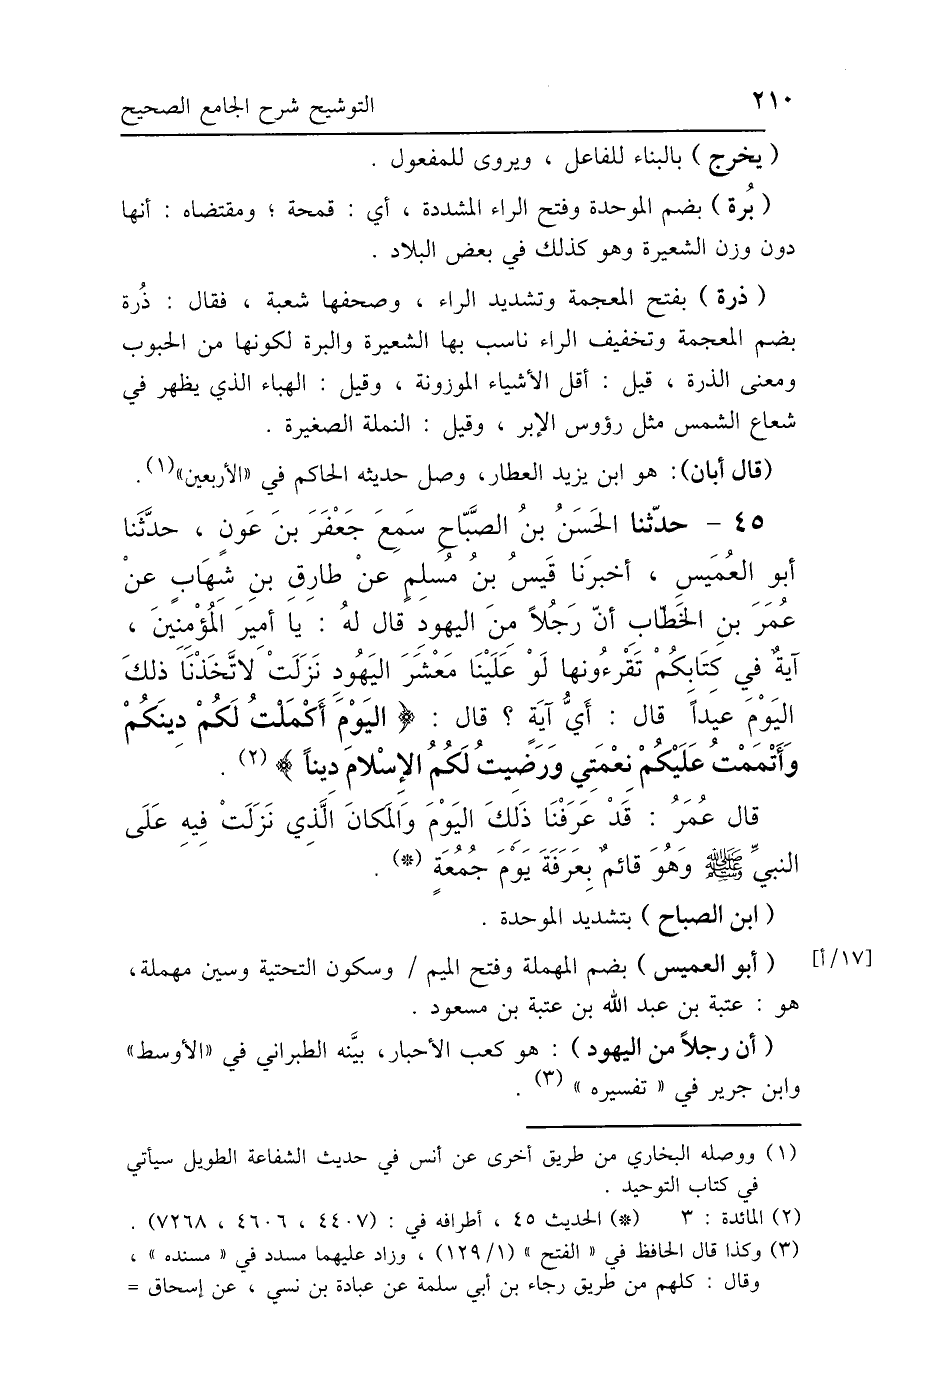 ٢١٠ التوشيح شرح الجامع الصحيح
( يخرج ) بالبناء للفاعل ، ويروى للمفعول .
( بُرة ) بضم الموحدة وفتح الراء المشددة ، أي : قمحة ؛ ومقتضاه : أنها
دون وزن الشعيرة وهو كذلك في بعض البلاد .
( ذرة ) بفتح المعجمة وتشديد الراء ، وصحفها شعبة ، فقال : ذُرة
بضم المعجمة وتخفيف الراء ناسب بها الشعيرة والبرة لكونها من الحبوب
ومعنى الذرة ، قيل : أقل الأشياء الموزونة ، وقيل : الهباء الذي يظهر في
شعاع الشمس مثل رؤوس الإبر ، وقيل : النملة الصغيرة .
(قال أبان): هو ابن يزيد العطار، وصل حديثه الحاكم في «الأربعين»(١).
٤٥ - حدّثنا الحَسَنُ بنُ الصَّبّاحِ سَمِعَ جَعْفَرَ بنَ عَونٍ ، حدَّثَنا
أبو العُمَيسِ ، أخبرَنا قَيسُ بنُ مُسلِمٍ عنْ طارِقِ بنِ شِهَابٍ عنْ
عُمَرَ بنِ الخَطّابِ أنّ رَجُلاً مِنَ اليهودِ قال لهُ : يا أميرَ المُؤْمِنِينَ ،
آيةٌ في كِتَابِكُمْ تَقْرءُونها لَوْ عَلَيْنَا مَعْشَرَ اليَهُودِ نَزَلَتْ لاتَّخَذْنَا ذلكَ
اليَوْمَ عيداً قال : أيُّ آيَةٍ ؟ قال : ﴿ اليَوْمَ أَكْمَلْتُ لَكُمْ دِينَكُمْ
وَأَتْمَمْتُ عَلَيْكُمْ نِعْمَتِي وَرَضِيتُ لَكُمُ الإسْلامَ دِيناً ﴾ (٢) .
قال عُمَرُ : قَدْ عَرَفْنَا ذَلكَ اليَوْمَ وَالمَكانَ الَّذي نَزَلَتْ فِيهِ عَلَى
النبيِّ ﷺ وَهُوَ قائمٌ بِعَرَفَةَ يَوْمَ جُمُعَةٍ (*) .
( ابن الصباح ) بتشديد الموحدة .
( أبو العميس ) بضم المهملة وفتح الميم / وسكون التحتية وسين مهملة، [١٧/أ]
هو : عتبة بن عبد الله بن عتبة بن مسعود .
( أن رجلاً من اليهود ) : هو كعب الأحبار، بيَّنه الطبراني في «الأوسط»
وابن جرير في « تفسيره » (٣) .
(١) ووصله البخاري من طريق أخرى عن أنس في حديث الشفاعة الطويل سيأتي
في كتاب التوحيد .
(٢) المائدة : ٣ (*) الحديث ٤٥ ، أطرافه في : (٤٤٠٧ ، ٤٦٠٦ ، ٧٢٦٨) .
(٣) وكذا قال الحافظ في « الفتح » (١٢٩/١) ، وزاد عليهما مسدد في « مسنده » ،
وقال : كلهم من طريق رجاء بن أبي سلمة عن عبادة بن نسي ، عن إسحاق =